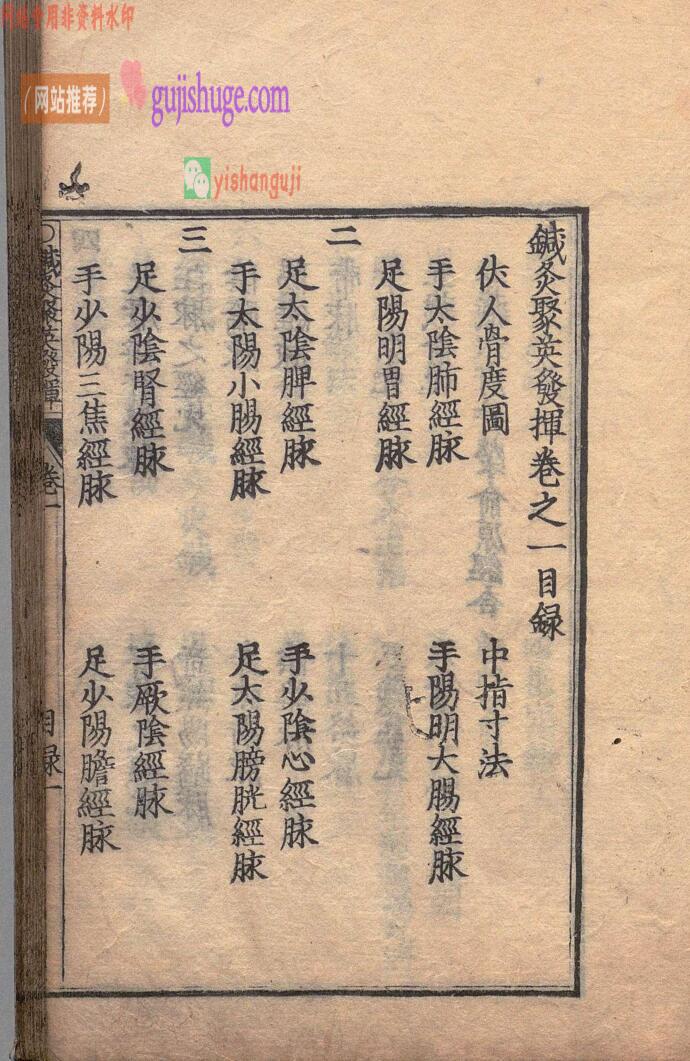 网站专用非资料水印
（网站推荐）
gujishuge.com
yishanguji
鍼灸聚英發揮卷之一目録
伏人骨度圖
中指寸法
手太陰肺經脉
手陽明大腸經脉
足陽明胃經脉
二
足太陰脾經脉
手少陰心經脉
手太陽小腸經脉
足太陽膀胱經脉
三
足少陰腎經脉
手厥陰經脉
手少陽三焦經脉
足少陽膽經脉
四
鍼灸聚英發揮
卷一
目録一